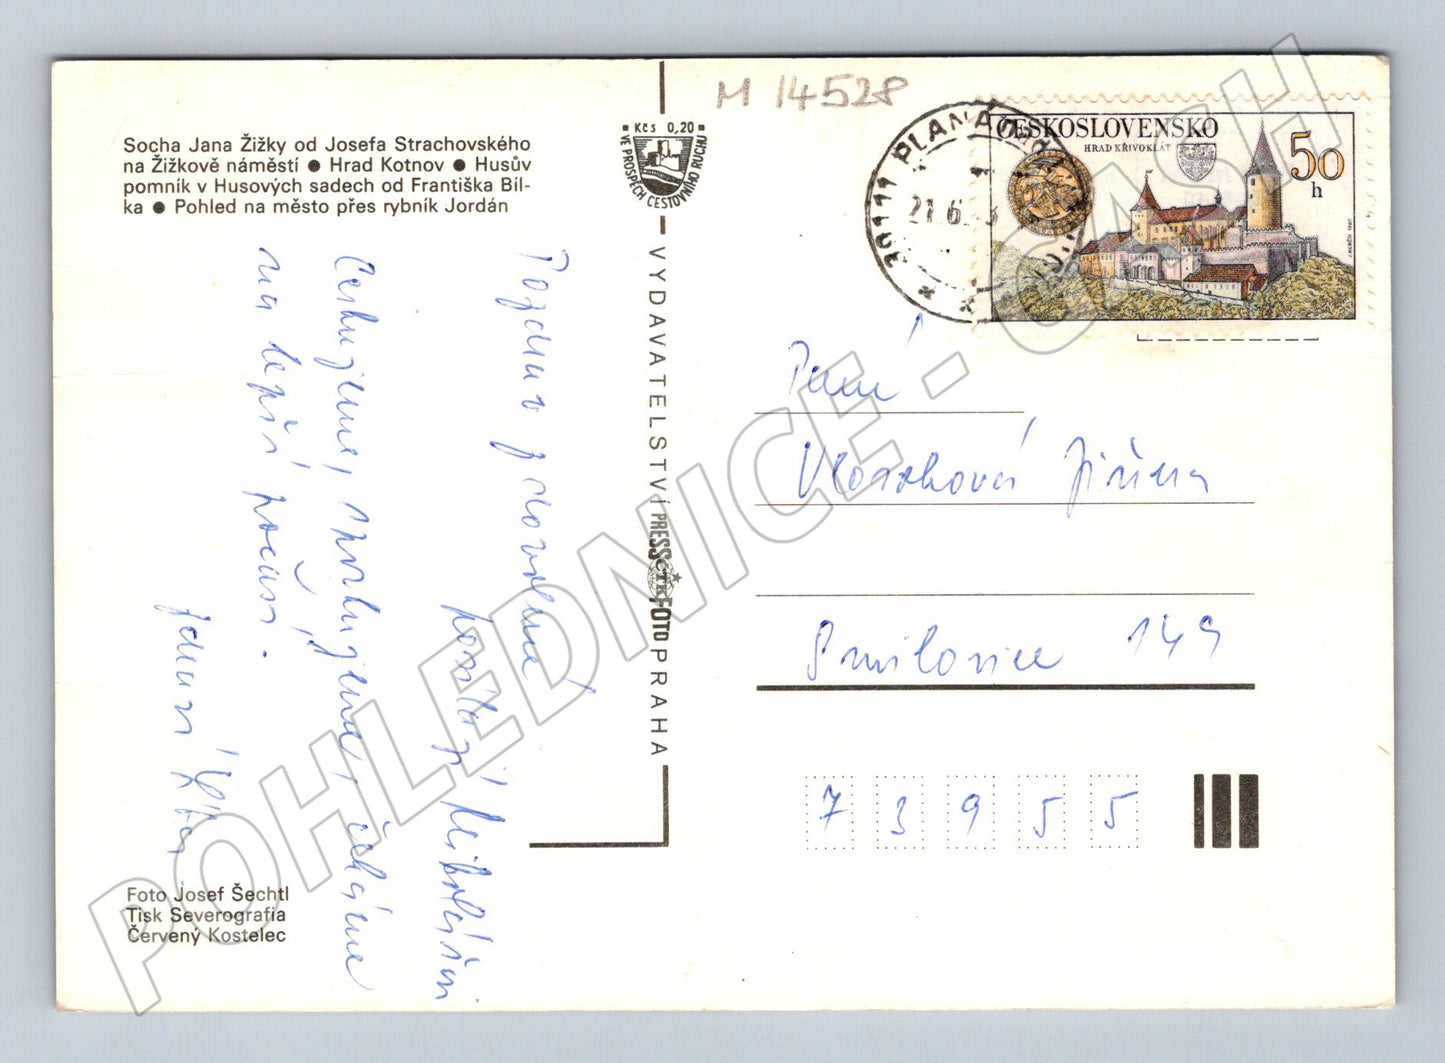 Socha Jana Žižky od Josefa Strachovského
na Žižkově náměstí ● Hrad Kotnov ● Husův
pomník v Husových sadech od Františka Bíl-
ka ● Pohled na město přes rybník Jordán
Pozdrav z dovolené
posílají
Cestujeme, sportujeme, čekáme
na lepší počasí.
Foto Josef Šechtl
Tisk Severografia
Červený Kostelec
Kčs 0,20
VE PROSPĚCH CESTOVNÍHO RUCHU
VYDAVATELSTVÍ PRESSFOTO PRAHA
ČTK
M 14528
391 11 PLANÁ
21.6.
ČESKOSLOVENSKO
HRAD KŘIVOKLÁT
50
h
Paní
Vlosoková Jiřina
Smilovice 149
7 3 9 5 5
POHLEDNICE - CASH